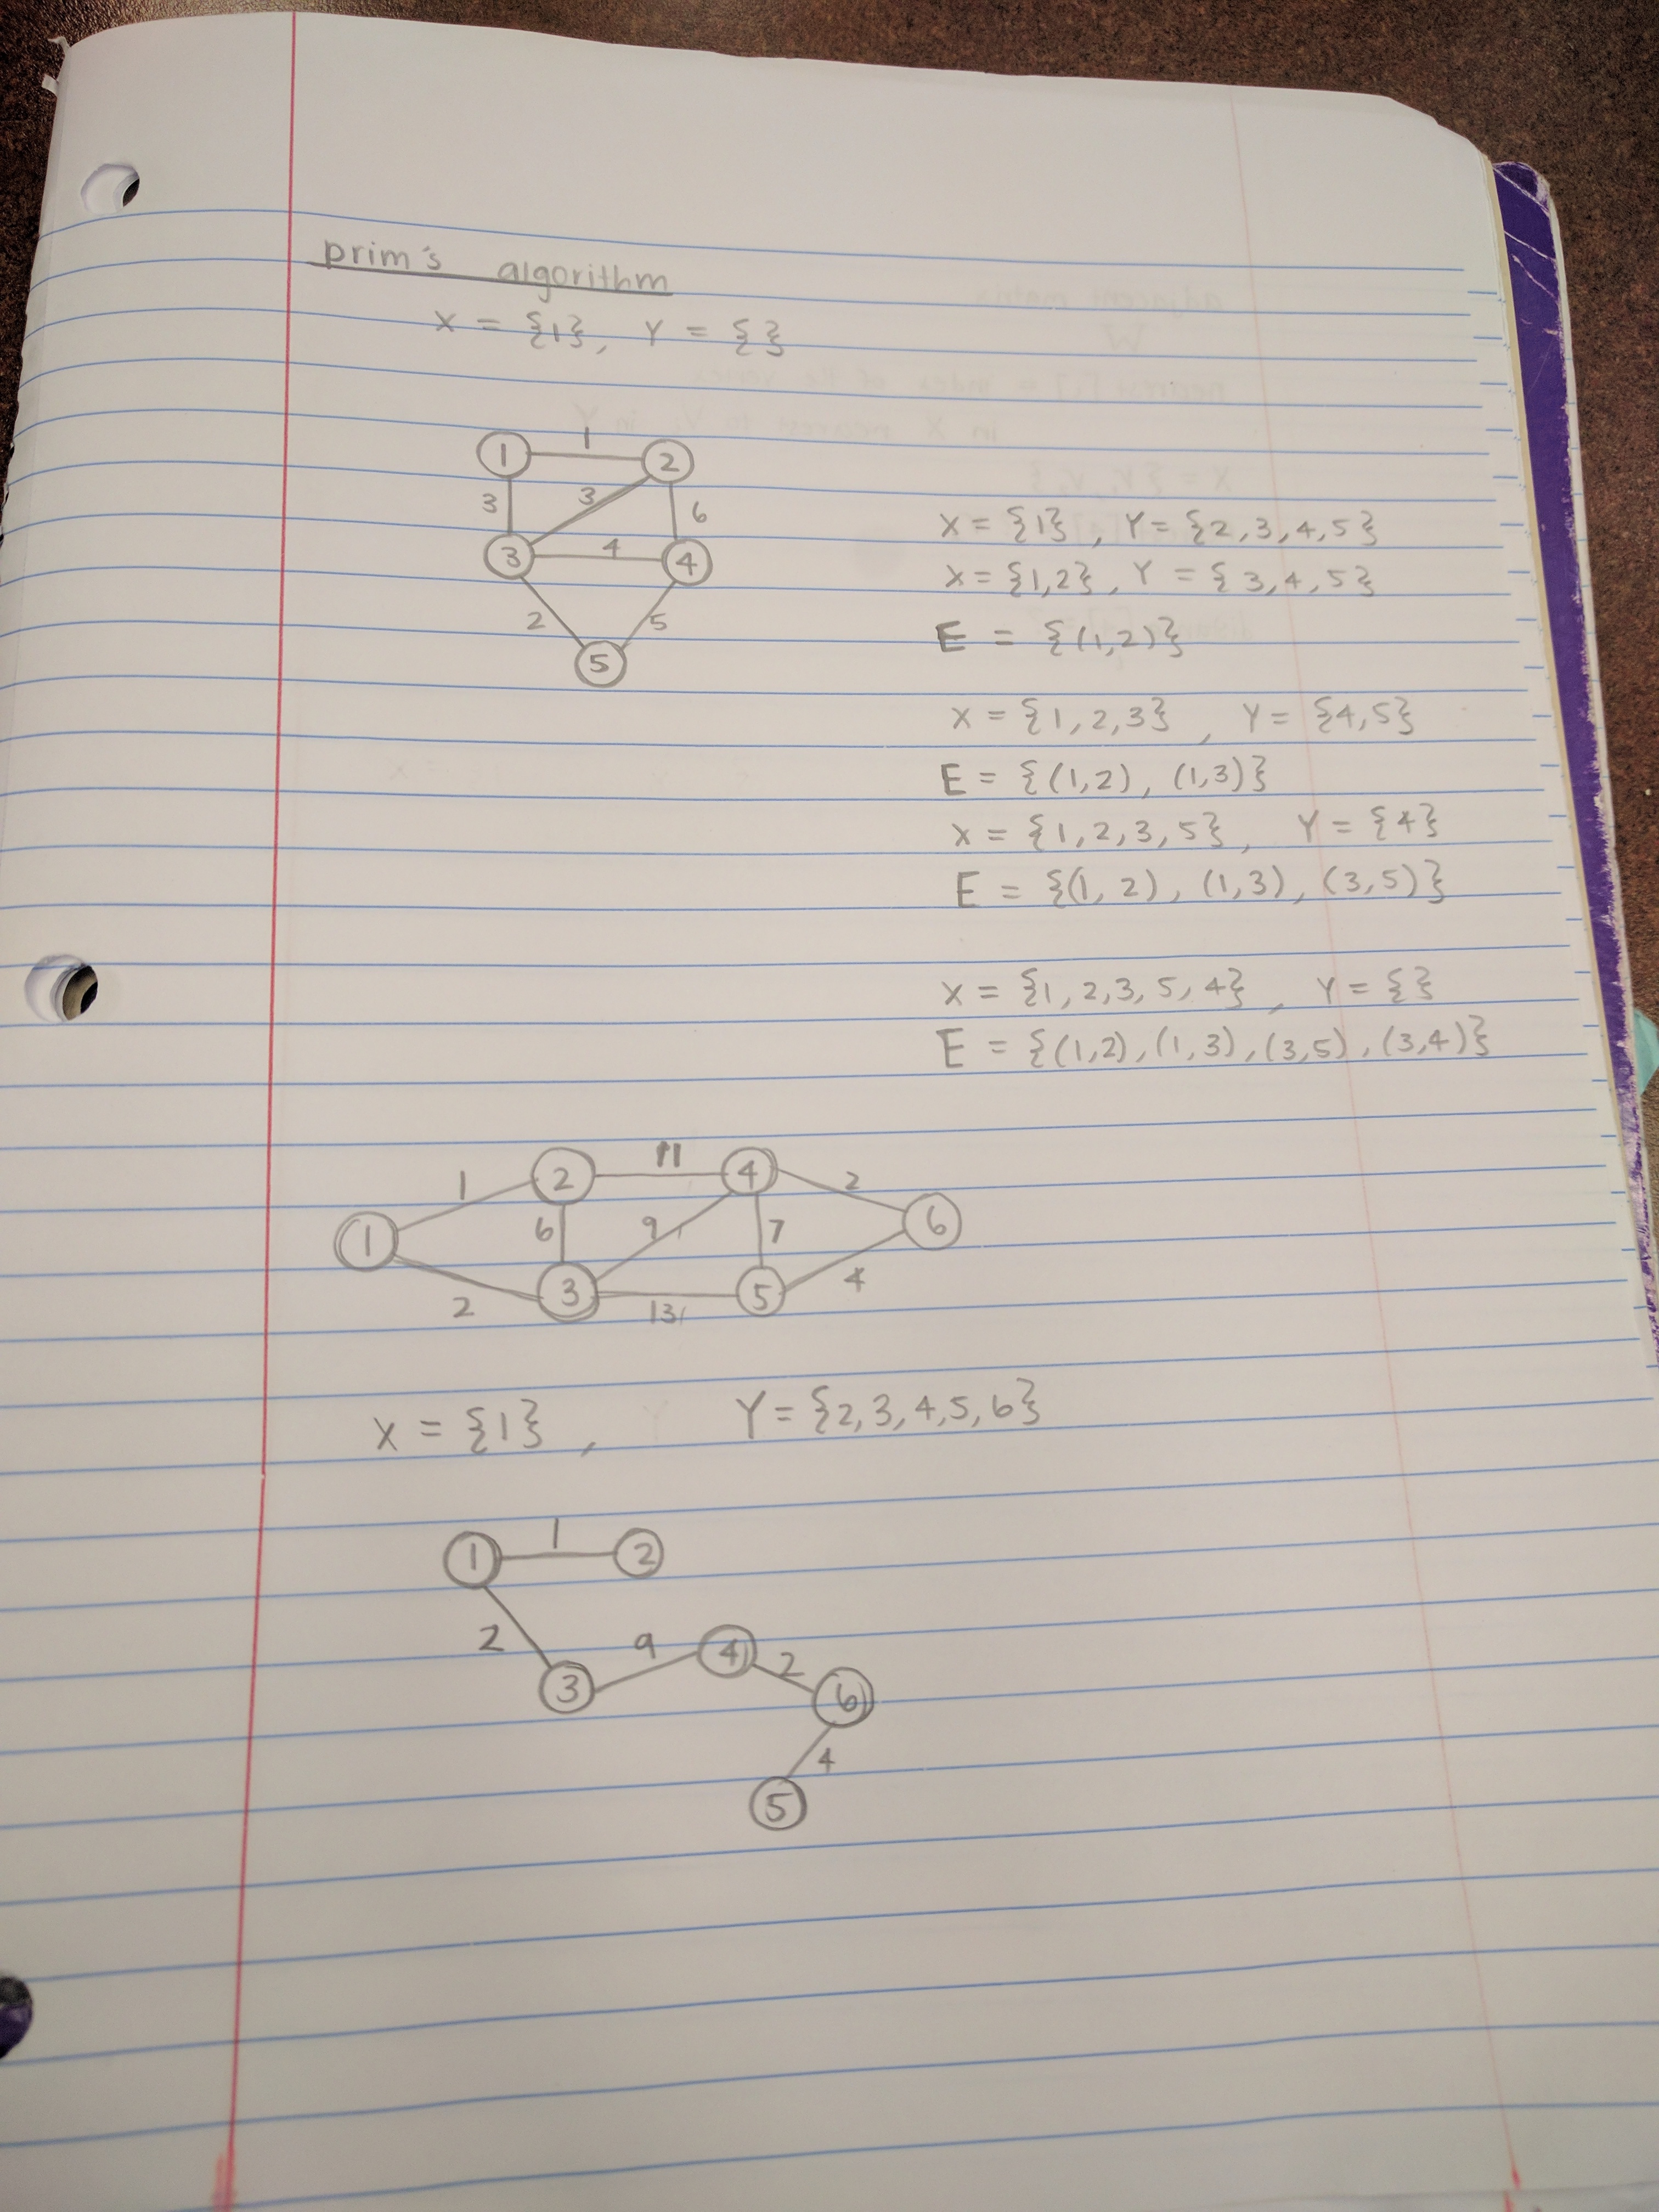 prim's algorithm
X = {1}, Y = {}
1 1 2
3 3 6
3 4 4
2 5
5
X = {1}, Y = {2,3,4,5}
X = {1,2}, Y = {3,4,5}
E = {(1,2)}
X = {1,2,3}, Y = {4,5}
E = {(1,2), (1,3)}
X = {1,2,3,5}, Y = {4}
E = {(1,2), (1,3), (3,5)}
X = {1,2,3,5,4}, Y = {}
E = {(1,2), (1,3), (3,5), (3,4)}
1 2 11 4 2
1 6 9 7 6
2 3 13 5 4
X = {1}, Y = {2,3,4,5,6}
1 1 2
2 9 4 2
3 6
4
5